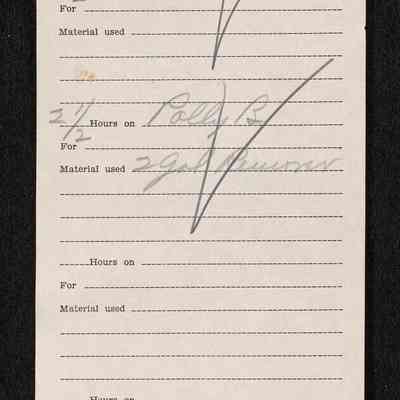 For
Material used
2 1/2 Hours on Polly B
For
Material used 2 Gal Remover
Hours on
For
Material used
Hours on